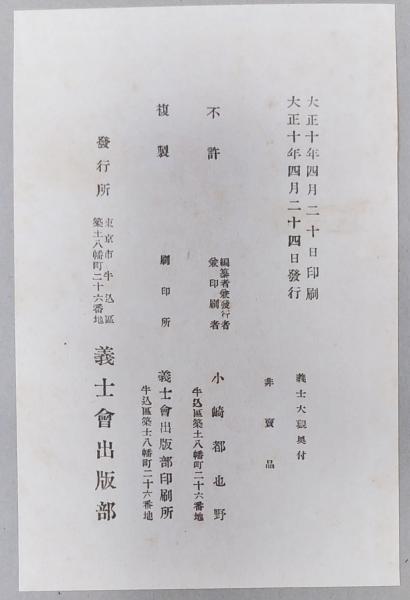 大正十年四月二十日印刷
大正十年四月二十四日發行
義士大觀奧付
非賣品
不許
複製
編纂者兼發行者
兼印刷者
小崎都也野
牛込區築土八幡町二十六番地
刷印所
義士會出版部印刷所
牛込區築土八幡町二十六番地
發行所
東京市牛込區
築土八幡町二十六番地
義士會出版部